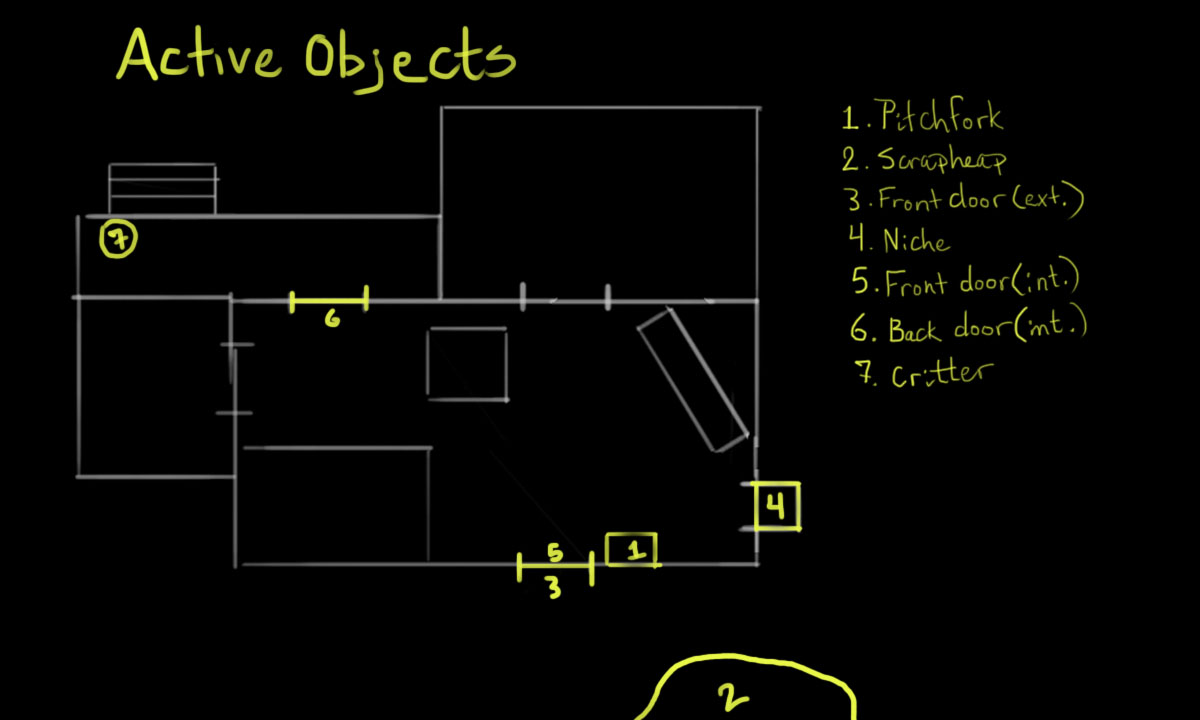 Active Objects
1. Pitchfork
2. Scrapheap
3. Front door (ext.)
4. Niche
5. Front door (int.)
6. Back door (int.)
7. Critter
7
6
4
5
1
3
2